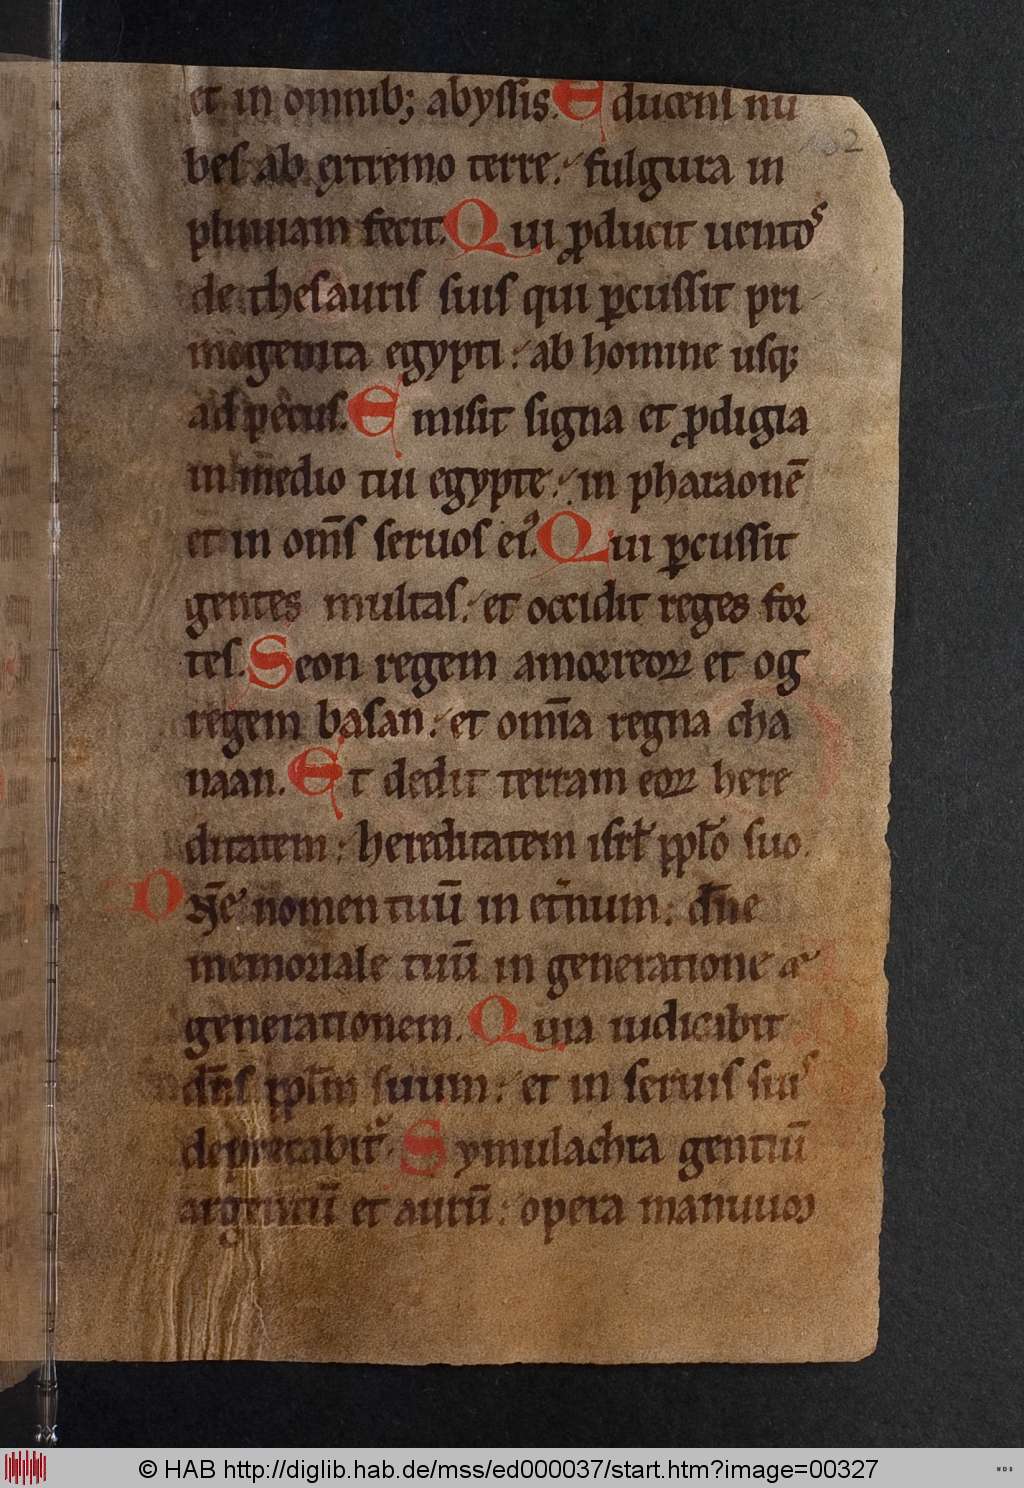 et in omnib; abyssis. Educens nu
162
bes ab extremo terre. fulgura in
pluuiam fecit. Qui ꝓducit uentos
de thesauris suis qui ꝑcussit pri
mogenita egypti : ab homine usq;
ad pecus. Emisit signa et ꝓdigia
in medio tui egypte : in pharaonē
et in om̄s seruos eiꝰ. Qui ꝑcussit
gentes multas : et occidit reges for
tes. Seon regem amorreoꝝ et og
regem basan : et om̄ia regna cha
naan. Et dedit terram eoꝝ here
ditatem : hereditatem isrl̄ ppl̄o suo.
Dn̄e nomen tuū in et̄num : dn̄e
memoriale tuū in generatione et
generationem. Quia iudicabit
dn̄s ppl̄m suum : et in seruis suis
deprecabit᷑. Symulachra gentiū
argentū et aurū : opera manuum
© HAB http://diglib.hab.de/mss/ed000037/start.htm?image=00327